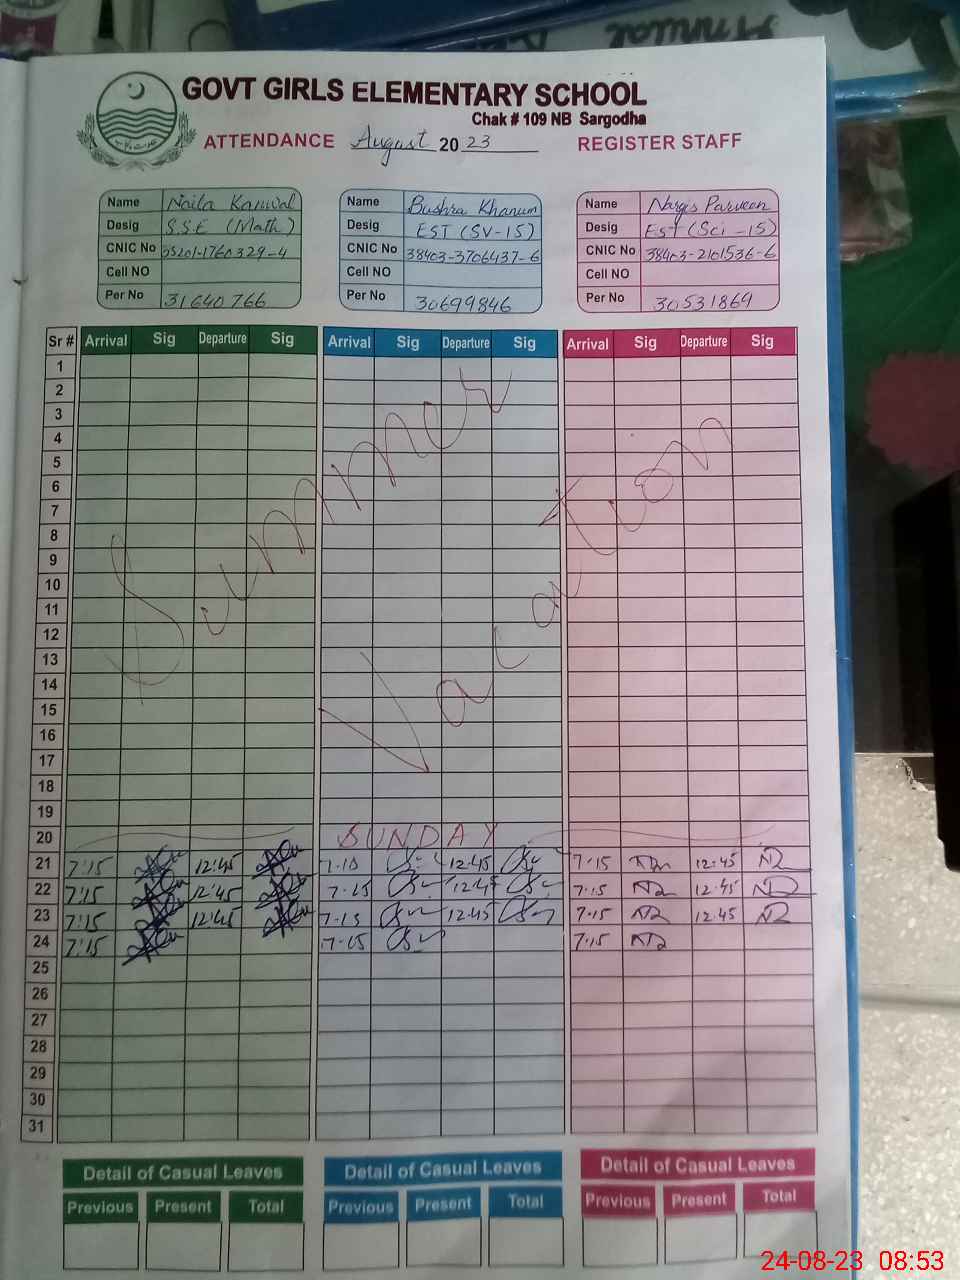 GOVT GIRLS ELEMENTARY SCHOOL
Chak # 109 NB Sargodha
ATTENDANCE August 2023 REGISTER STAFF
Name Naila Kanwal Name Bushra Khanum Name Nargis Parveen
Desig S.S.E (Math) Desig EST (SV-15) Desig EST (Sci-15)
CNIC No 35201-1760329-4 CNIC No 38403-3706437-6 CNIC No 38403-2101536-6
Cell NO Cell NO Cell NO
Per No 31640766 Per No 30699846 Per No 30531869
Sr # Arrival Sig Departure Sig Arrival Sig Departure Sig Arrival Sig Departure Sig
1
2
3
4
5
6
7
8
9
10
11
12
13
14
15
16
17
18
19
Summer Vacation
20 SUNDAY
21 7:15 12:45 7-15 12:45 7:15 12:45
22 7:15 12:45 7-15 12:45 7:15 12:45
23 7:15 12:45 7-15 12:45 7:15 12:45
24 7:15 7-15 7:15
25
26
27
28
29
30
31
Detail of Casual Leaves Detail of Casual Leaves Detail of Casual Leaves
Previous Present Total Previous Present Total Previous Present Total
24-08-23 08:53